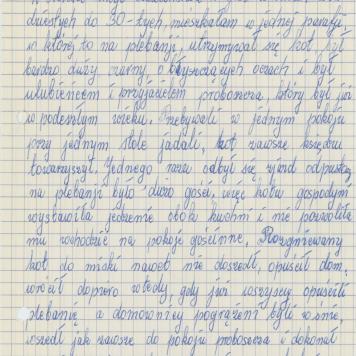 dziestych do 30-tych, mieszkałam w jednej parafii,
w której to na plebanji, utrzymywał się kot, był
bardzo duży czarny o błyszczących oczach i był
ulubieńcem i przyjacielem proboszcza, który był już
w podeszłym wieku. Przebywali w jednym pokoju
przy jednym stole jadali, kot zawsze księdzu
towarzyszył. Jednego razu odbył się zjazd odpustowy
na plebanji było dużo gości, więc kotu gospodyni
wystawiła jedzenie obok kuchni i nie pozwoliła
mu wchodzić na pokoje gościnne. Rozgniewany
kot do miski nawet nie doszedł, opuścił dom,
wrócił dopiero wtedy, gdy już wszyscy opuścili
plebanię a domownicy pogrążeni byli w śnie,
wszedł jak zawsze do pokoju proboszcza i dokonał